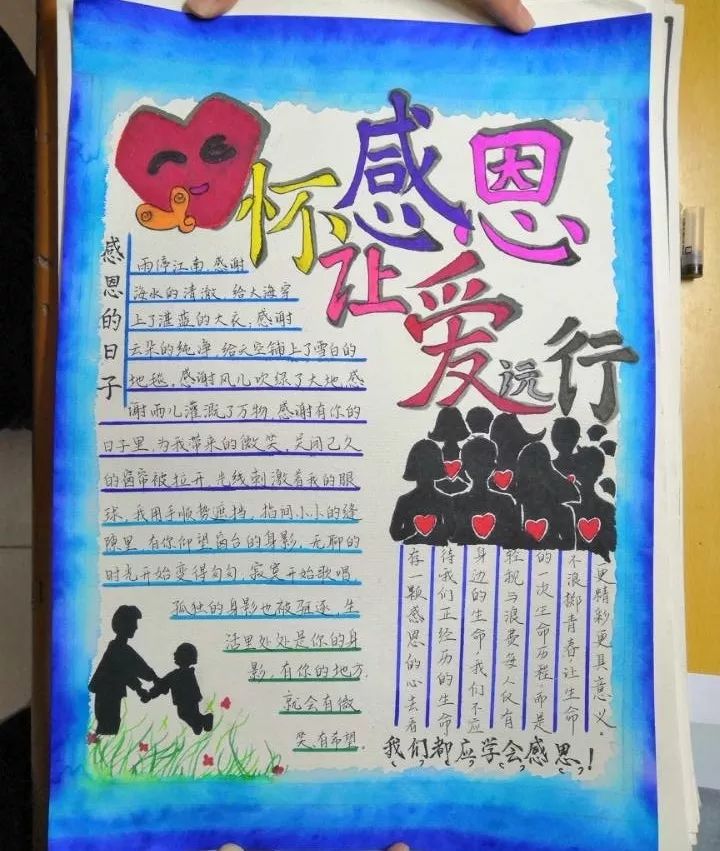 怀感恩
让爱远行
感恩的日子
雨停江南,感谢
海水的清澈,给大海穿
上了湛蓝的大衣;感谢
云朵的纯净,给天空铺上了雪白的
地毯,感谢风儿吹绿了大地,感
谢雨儿灌溉了万物,感谢有你的
日子里,为我带来的微笑,关闭已久
的窗帘被拉开,光线刺激着我的眼
球,我用手顺势遮挡,指间小小的缝
隙里,有你仰望窗台的身影,无聊的
时光开始变得匆匆,寂寞开始歌唱
孤独的身影也被驱逐,生
活里处处是你的身
影,有你的地方,
就会有微
笑、有希望。
存一颗感恩的心去看
待我们正经历的生命
身边的生命,我们不应
轻视与浪费每人仅有
的一次生命历程,而是
不浪掷青春,让生命
更精彩更具意义。
我们都应学会感恩!